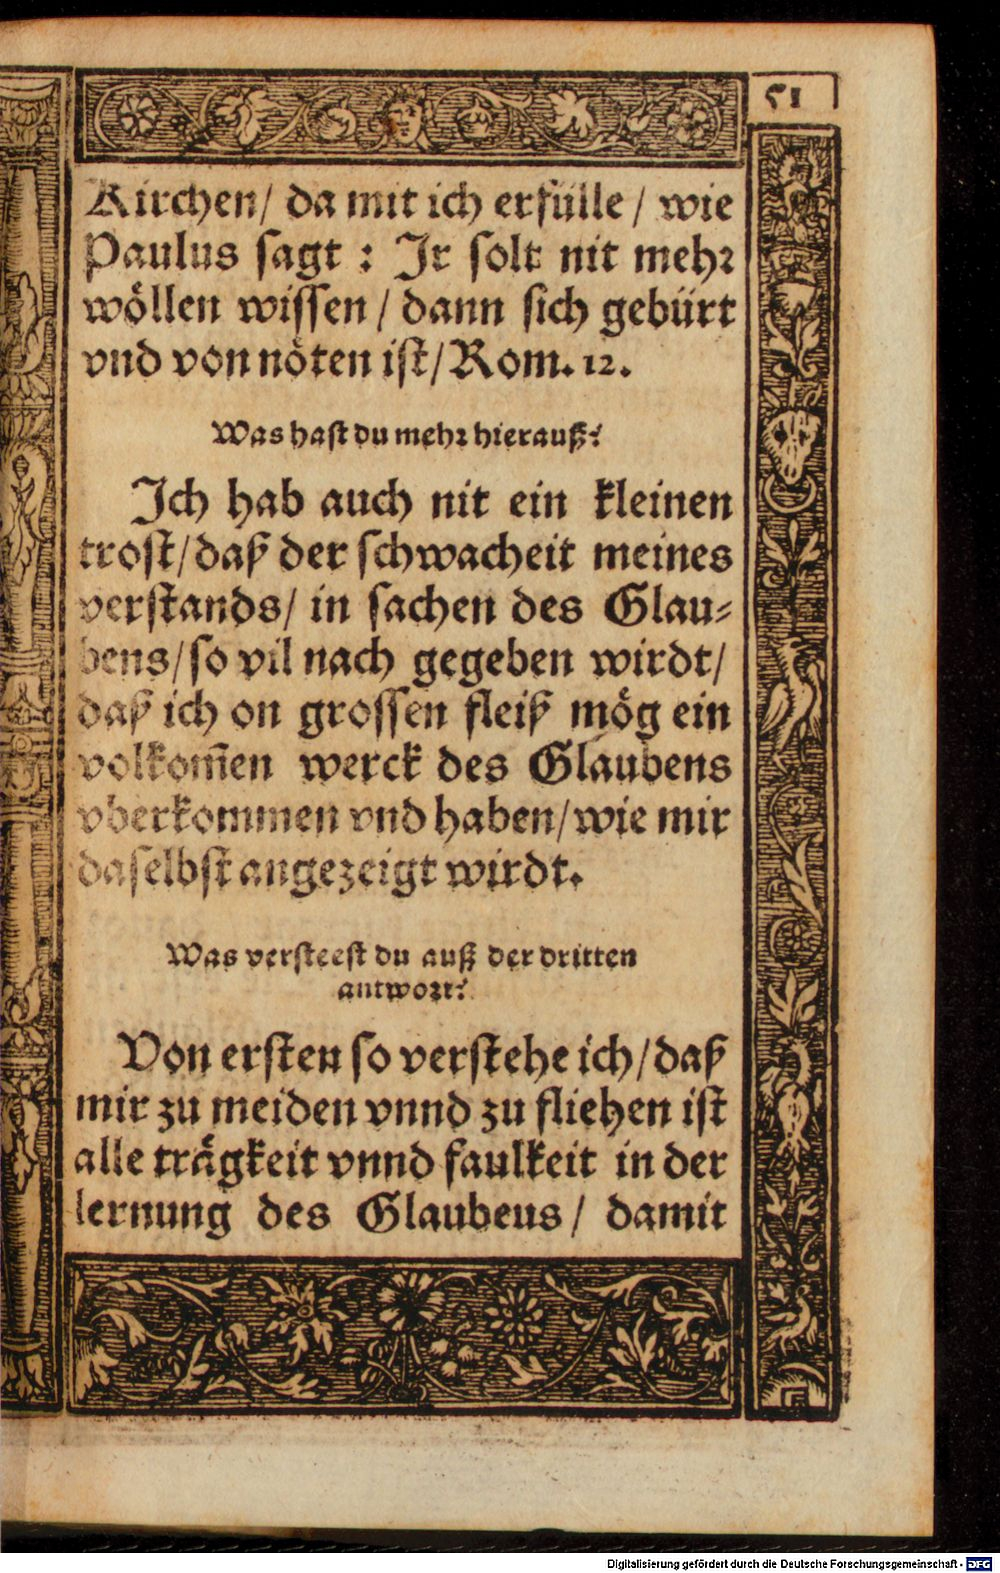 51
Kirchen/ da mit ich erfülle/ wie
Paulus sagt : Ir solt nit mehr
wöllen wissen/ dann sich gebürt
vnd von nöten ist/ Rom. 12.
Was hast du mehr hierauß?
Ich hab auch nit ein kleinen
trost/ daß der schwacheit meines
verstands/ in sachen des Glau-
bens/ so vil nach gegeben wirdt/
daß ich on grossen fleiß mög ein
volkom̃en werck des Glaubens
vberkommen vnd haben/ wie mir
daselbst angezeigt wirdt.
Was versteest du auß der dritten
antwort?
Von ersten so verstehe ich/ daß
mir zu meiden vnnd zu fliehen ist
alle trägkeit vnnd faulkeit in der
lernung des Glaubeus/ damit
Digitalisierung gefördert durch die Deutsche Forschungsgemeinschaft - DFG